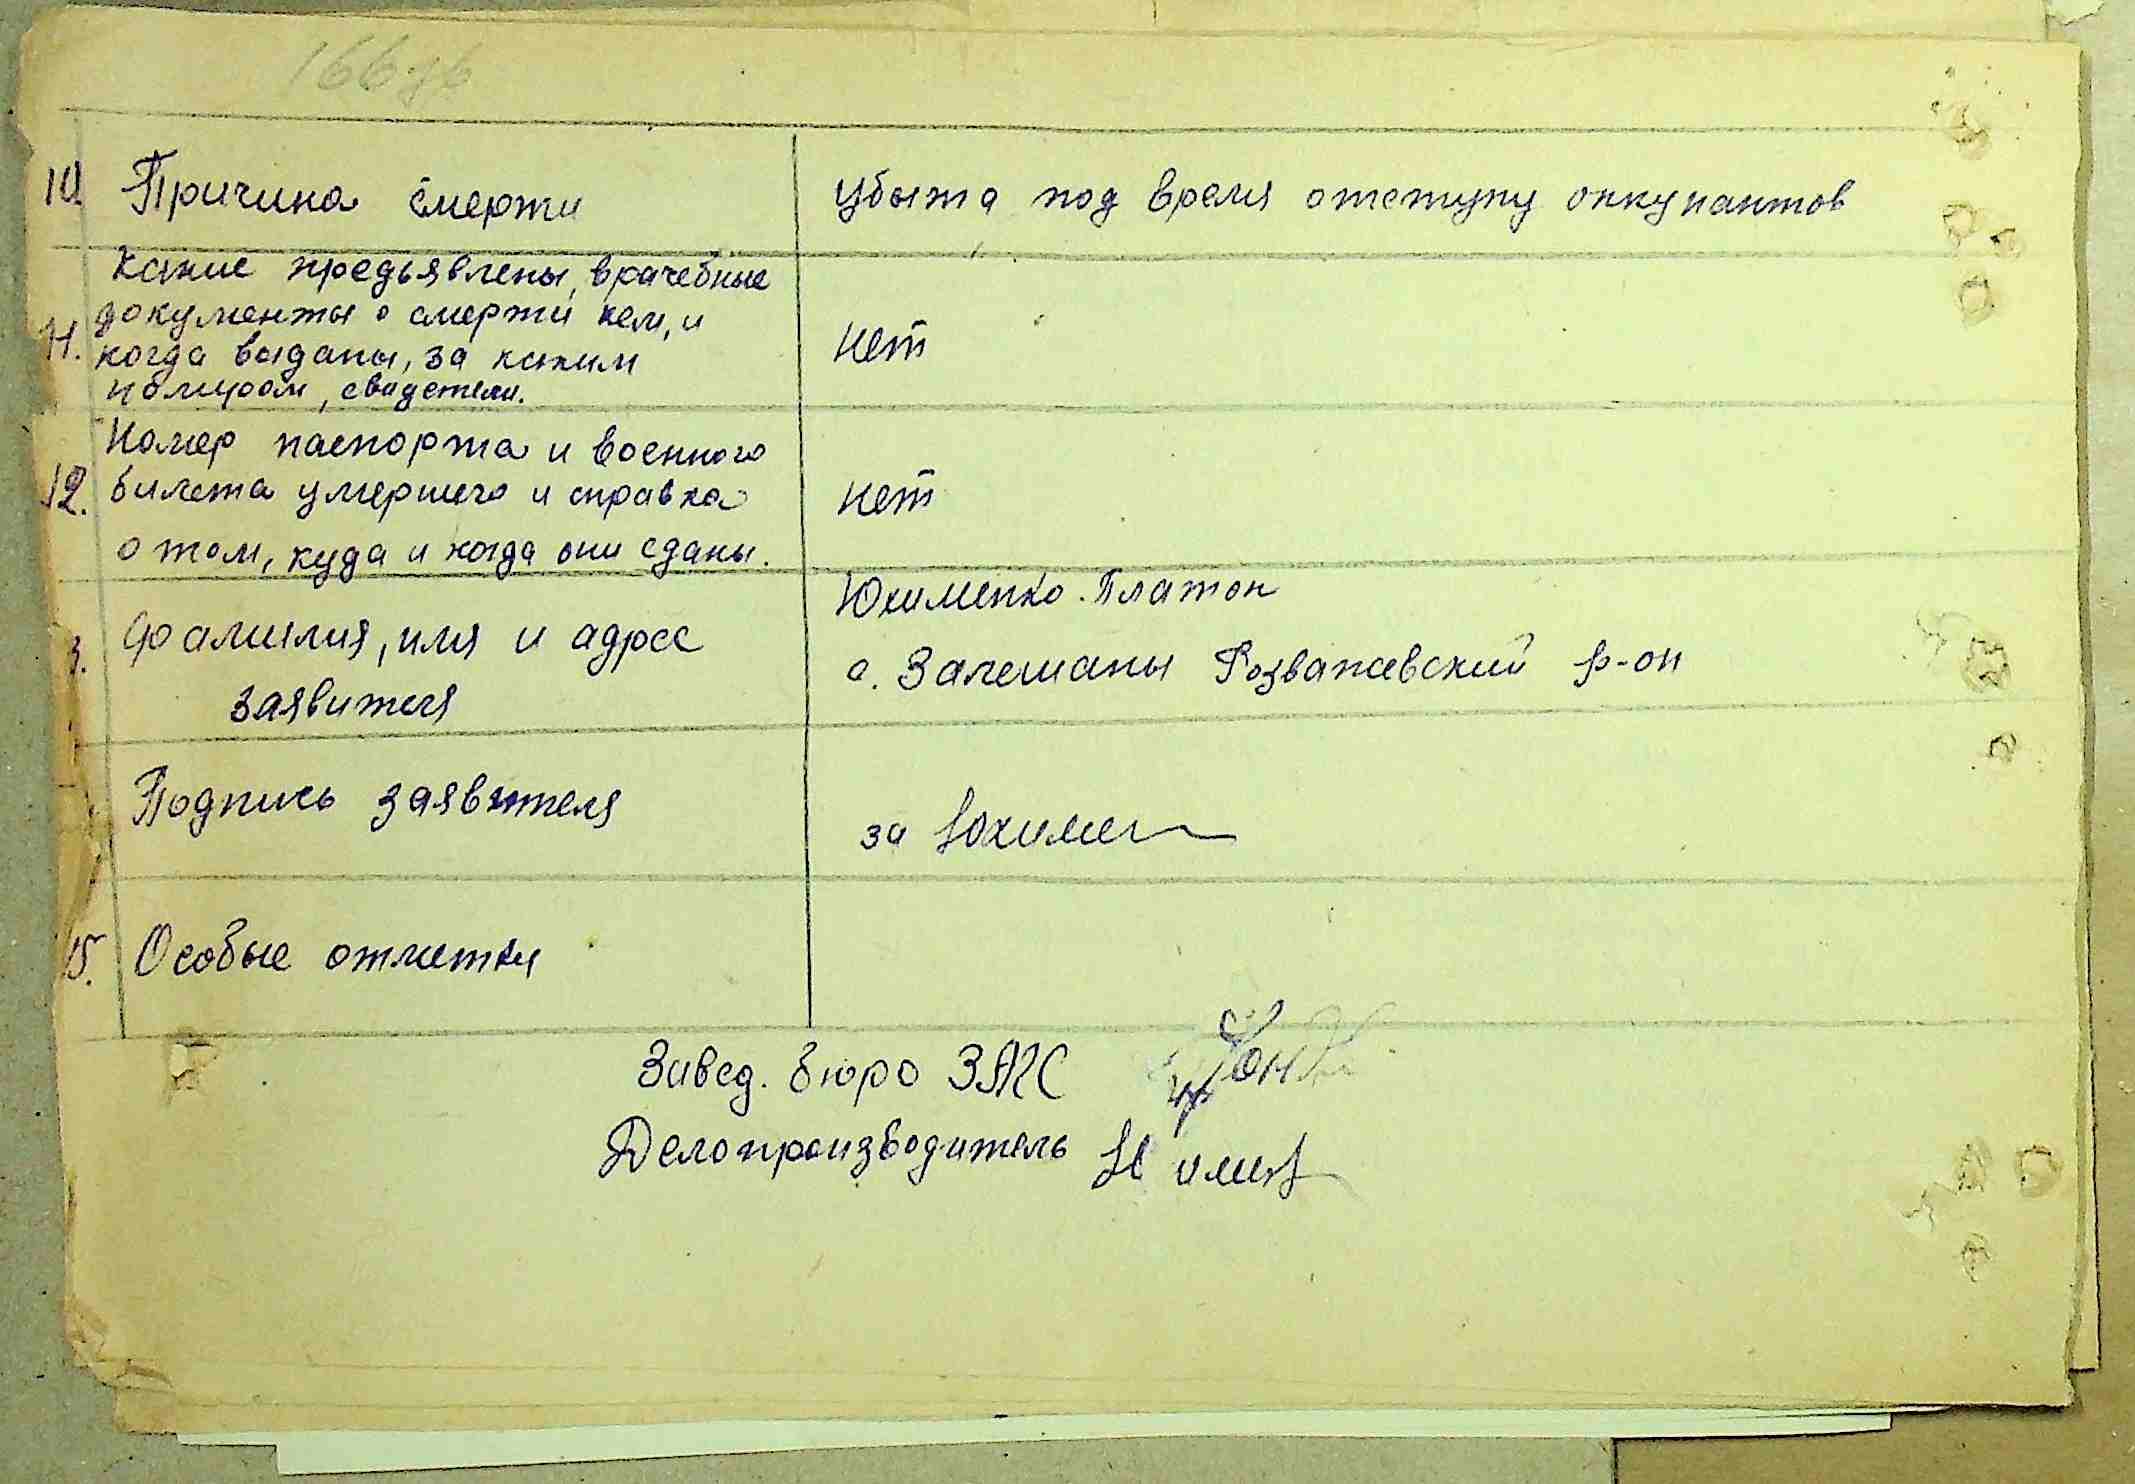 166 зв
10 Причина смерти
убыта под время отступу оккупантов
11. Какие предъявлены врачебные
документы о смерти кем, и
когда выданы, за каким
номером, свидетели.
нет
12. Номер паспорта и военного
билета умершего и справка
о том, куда и когда они сданы.
нет
3. Фамилия, имя и адрес
заявителя
Юхименко Платон
с. Залешаны Розважевский р-он
Подпись заявителя
за Юхимен
15. Особые отметки
Завед. бюро ЗАГС
Делопроизводитель